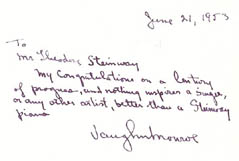 June 21, 1953
To
Mr Theodore Steinway
My Congratulations on a Century
of progress, and nothing inspires a Singer,
or any other artist, better than a Steinway
piano
Vaughn Monroe